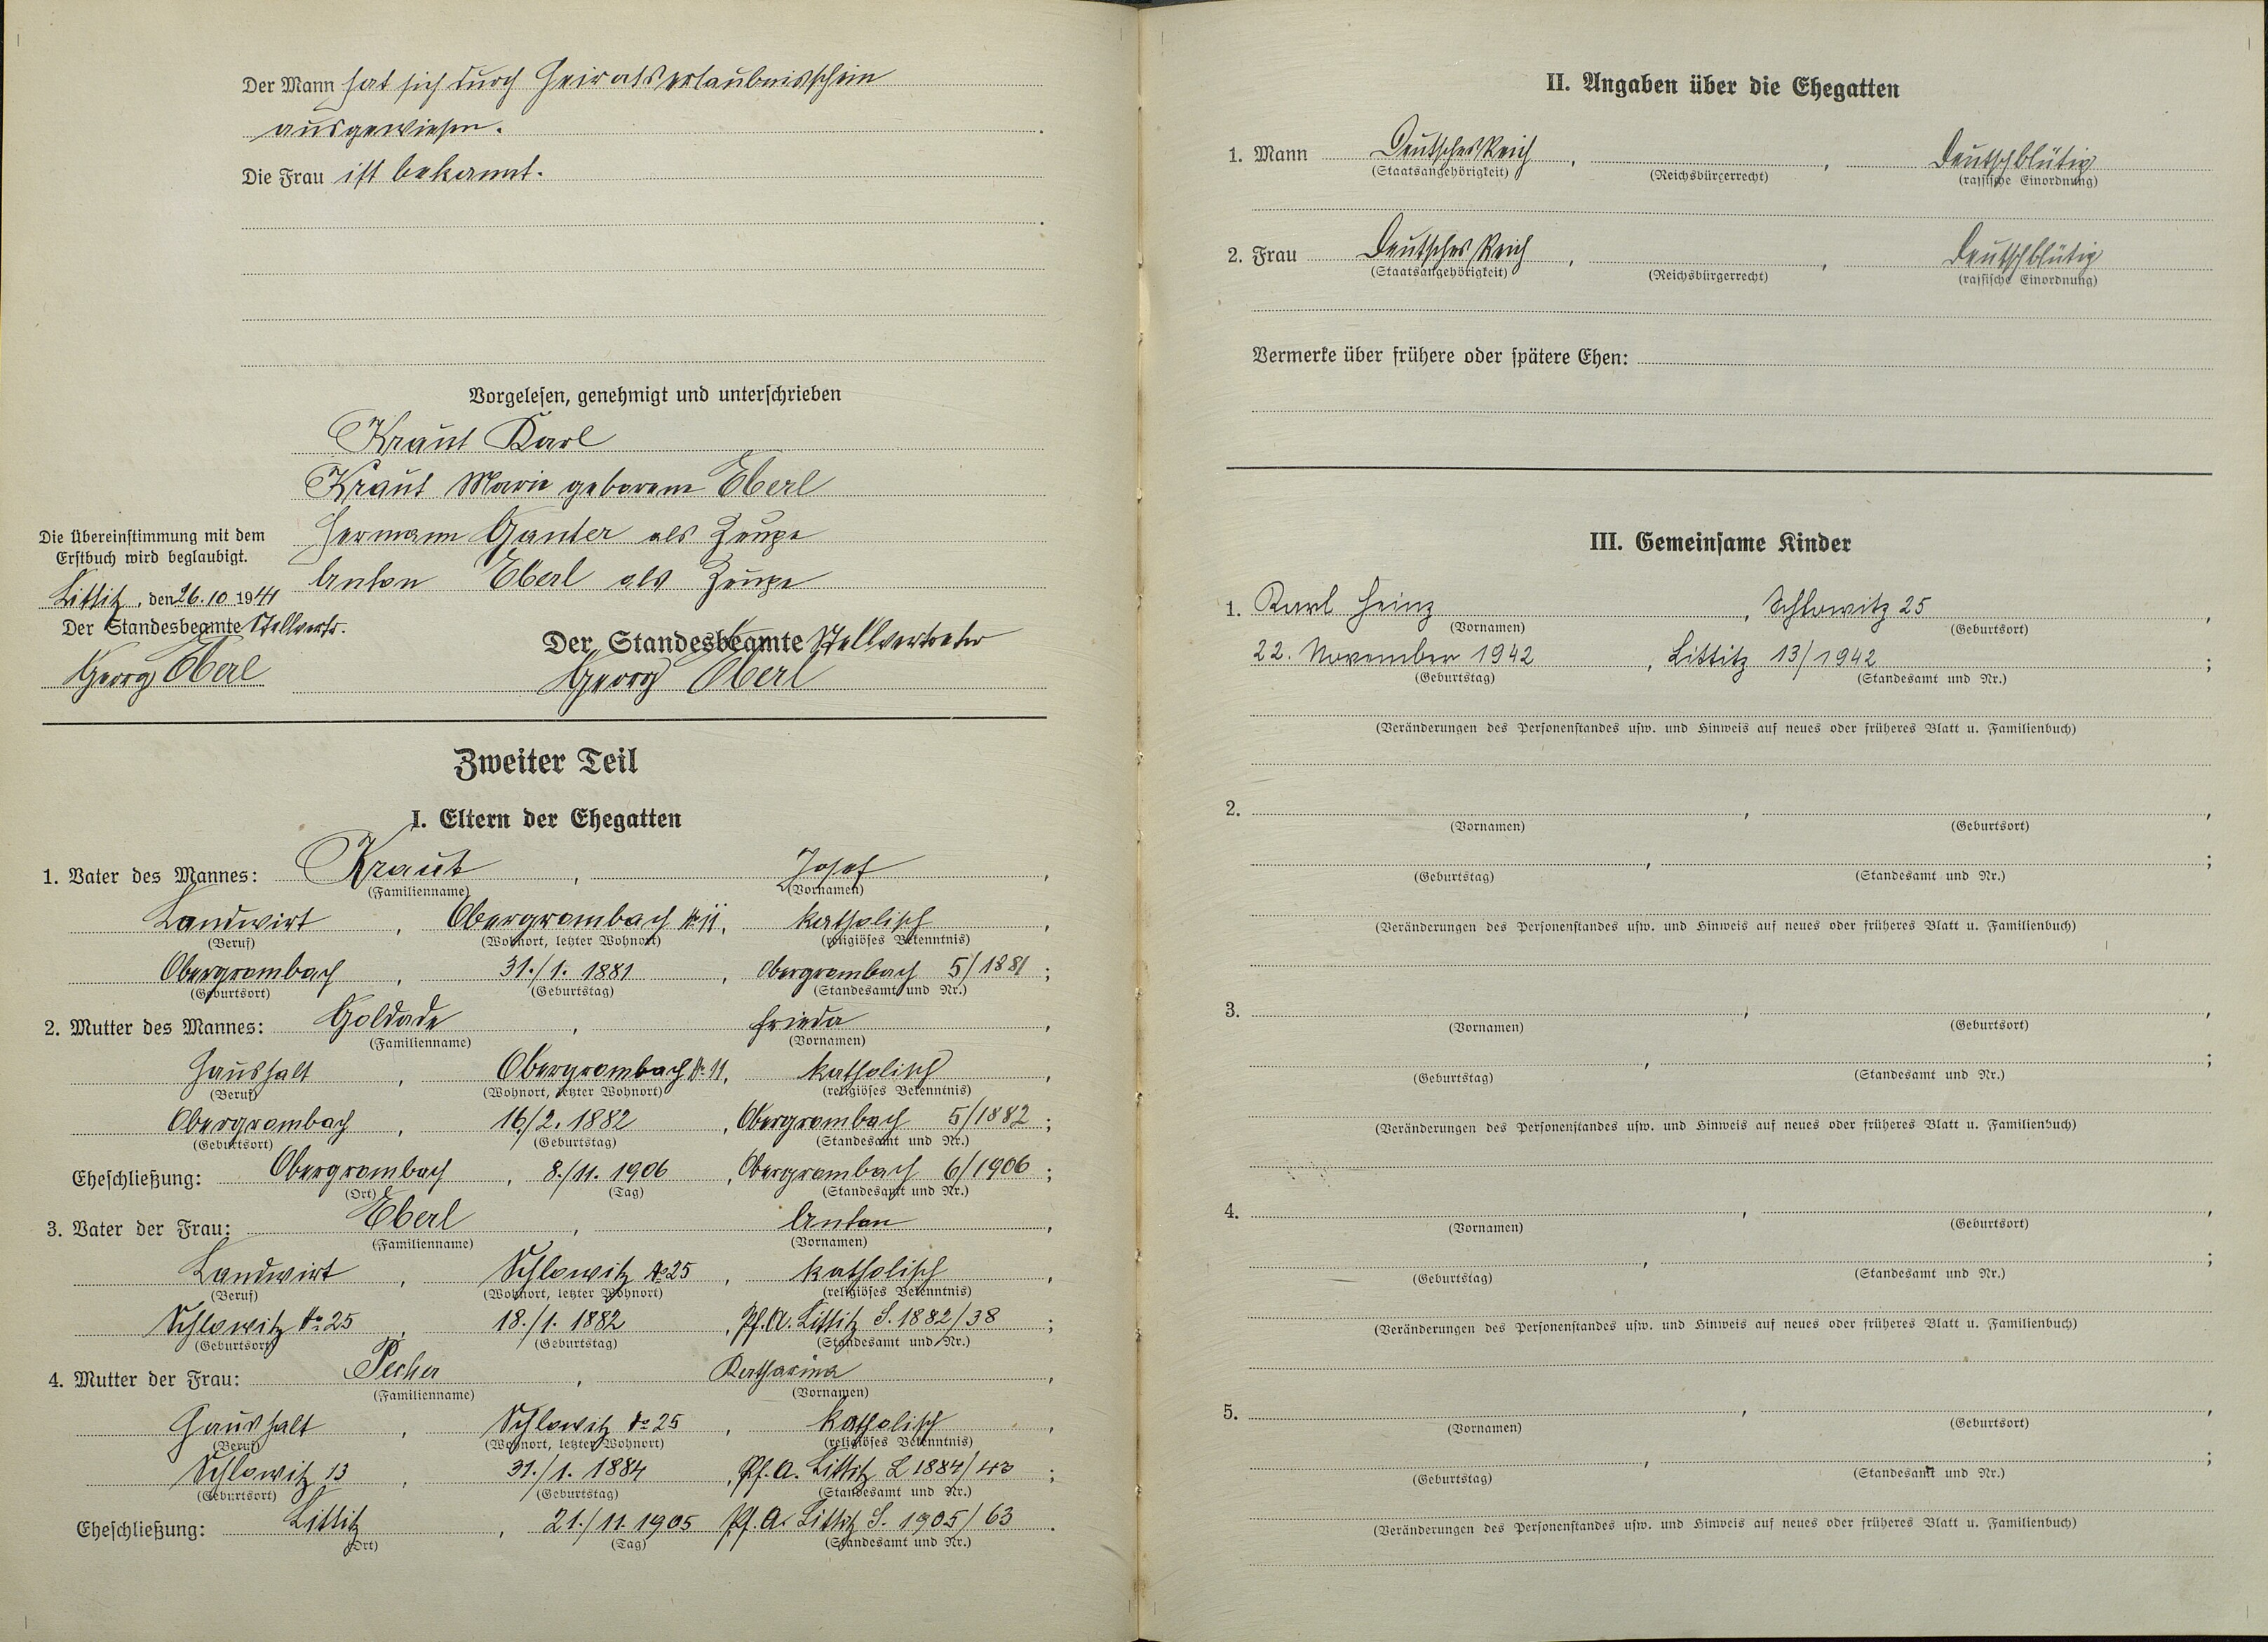 Der Mann hat sich durch Heiratserlaubnisschein
ausgewiesen.
Die Frau ist bekannt.
Vorgelesen, genehmigt und unterschrieben
Kraut Karl
Kraut Marie geborene Eberl
Hermann Ganter als Zeuge
Anton Eberl als Zeuge
Die Übereinstimmung mit dem
Erstbuch wird beglaubigt.
Littitz, den 26.10 1941
Der Standesbeamte Stellvertr.
Georg Eberl
Der Standesbeamte Stellvertreter
Georg Eberl
Zweiter Teil
I. Eltern der Ehegatten
1. Vater des Mannes: Kraut, Josef,
(Familienname) (Vornamen)
Landwirt, Obergrombach No 11, katholisch,
(Beruf) (Wohnort, letzter Wohnort) (religiöses Bekenntnis)
Obergrombach, 31./1. 1881, Obergrombach 5/1881;
(Geburtsort) (Geburtstag) (Standesamt und Nr.)
2. Mutter des Mannes: Goldade, Frieda,
(Familienname) (Vornamen)
Haushalt, Obergrombach No 11, katholisch,
(Beruf) (Wohnort, letzter Wohnort) (religiöses Bekenntnis)
Obergrombach, 16./2. 1882, Obergrombach 5/1882;
(Geburtsort) (Geburtstag) (Standesamt und Nr.)
Eheschließung: Obergrombach, 8./11. 1906, Obergrombach 6/1906;
(Ort) (Tag) (Standesamt und Nr.)
3. Vater der Frau: Eberl, Anton,
(Familienname) (Vornamen)
Landwirt, Schlowitz No 25, katholisch,
(Beruf) (Wohnort, letzter Wohnort) (religiöses Bekenntnis)
Schlowitz No 25, 18./1. 1882, Pf. A. Littitz S. 1882/38;
(Geburtsort) (Geburtstag) (Standesamt und Nr.)
4. Mutter der Frau: Pecher, Katharina,
(Familienname) (Vornamen)
Haushalt, Schlowitz No 25, katholisch,
(Beruf) (Wohnort, letzter Wohnort) (religiöses Bekenntnis)
Schlowitz 13, 31./1. 1884, Pf. A. Littitz 1884/;
(Geburtsort) (Geburtstag) (Standesamt und Nr.)
Eheschließung: Littitz, 21./11. 1905 Pf. A. Littitz S. 1905/63.
(Ort) (Tag) (Standesamt und Nr.)
II. Angaben über die Ehegatten
1. Mann Deutsches Reich, , Deutschblütig
(Staatsangehörigkeit) (Reichsbürgerrecht) (rassische Einordnung)
2. Frau Deutsches Reich, , Deutschblütig
(Staatsangehörigkeit) (Reichsbürgerrecht) (rassische Einordnung)
Vermerke über frühere oder spätere Ehen:
III. Gemeinsame Kinder
1. Karl Heinz, Schlowitz 25,
(Vornamen) (Geburtsort)
22. November 1942, Littitz 13/1942;
(Geburtstag) (Standesamt und Nr.)
(Veränderungen des Personenstandes usw. und Hinweis auf neues oder früheres Blatt u. Familienbuch)
2. , ,
(Vornamen) (Geburtsort)
, ;
(Geburtstag) (Standesamt und Nr.)
(Veränderungen des Personenstandes usw. und Hinweis auf neues oder früheres Blatt u. Familienbuch)
3. , ,
(Vornamen) (Geburtsort)
, ;
(Geburtstag) (Standesamt und Nr.)
(Veränderungen des Personenstandes usw. und Hinweis auf neues oder früheres Blatt u. Familienbuch)
4. , ,
(Vornamen) (Geburtsort)
, ;
(Geburtstag) (Standesamt und Nr.)
(Veränderungen des Personenstandes usw. und Hinweis auf neues oder früheres Blatt u. Familienbuch)
5. , ,
(Vornamen) (Geburtsort)
, ;
(Geburtstag) (Standesamt und Nr.)
(Veränderungen des Personenstandes usw. und Hinweis auf neues oder früheres Blatt u. Familienbuch)